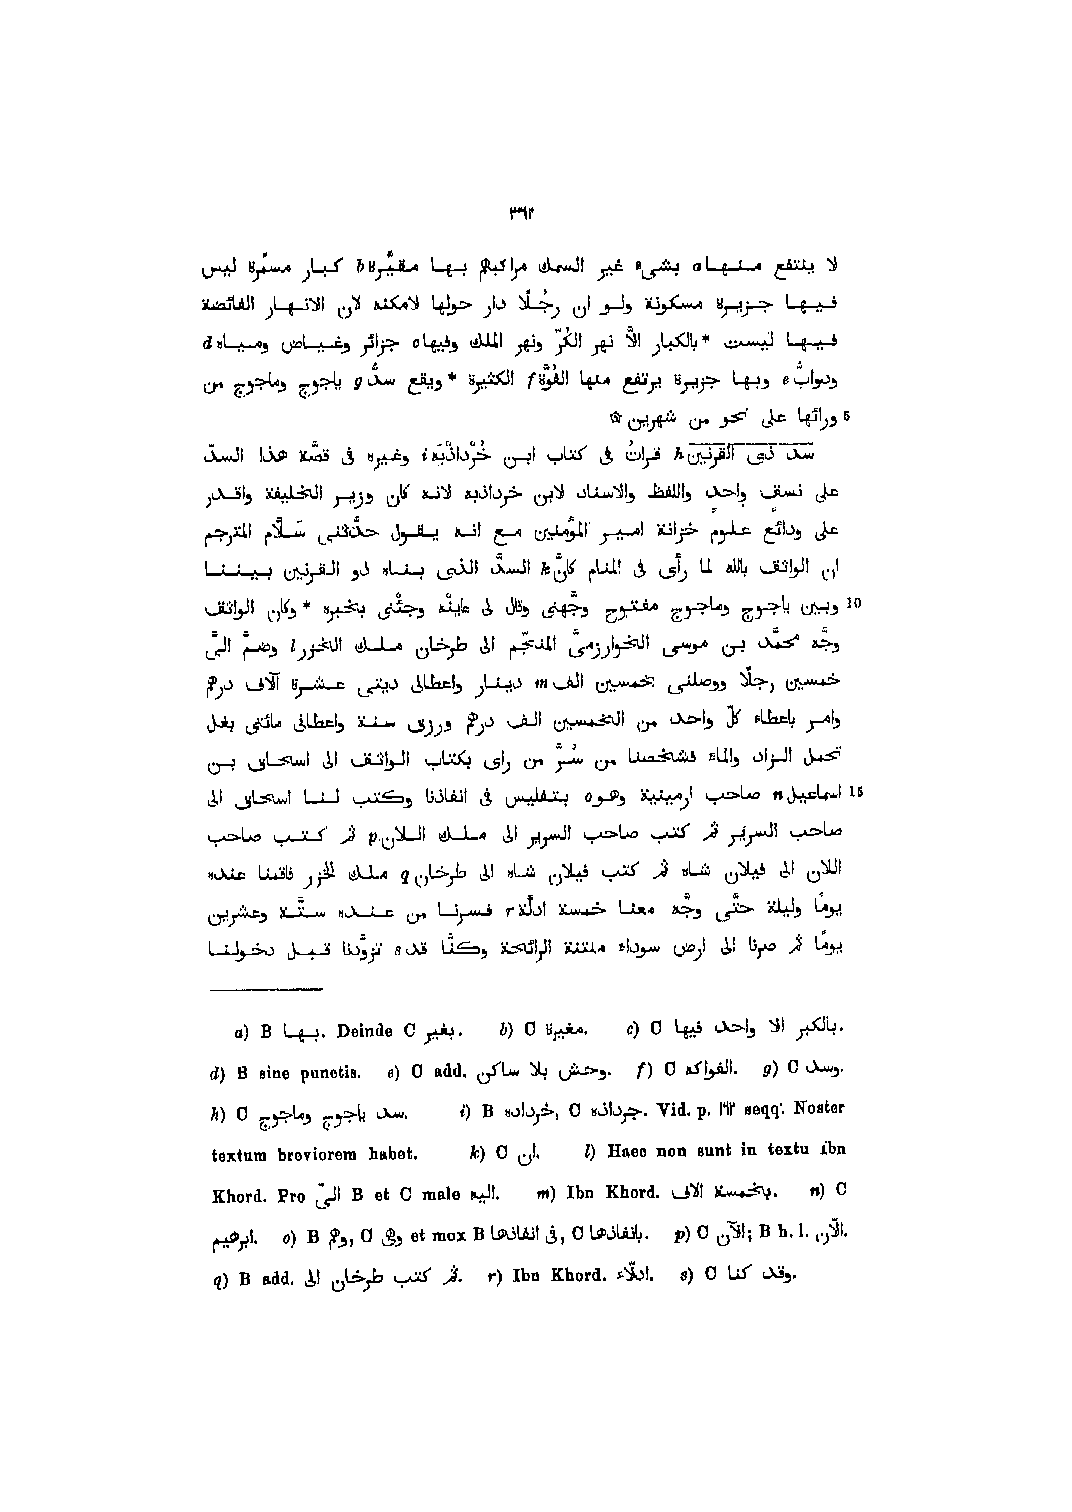 ٣٦٢
لا ينتفع منها a بشىء غير السمك مراكبهم بها مقيَّرة b كبار مسمّرة ليس
فيها جزيرة مسكونة ولو ان رجُلًا دار حولها لامكنه لان الانهار الفائضة
فيها ليست *بالكبار الّا نهر الكُرّ ونهر الملك وفيها c جزائر وغياض ومياه d
ودوابّ e وبها جزيرة يرتفع منها الفُوَّة f الكثيرة *ويقع سدُّ g ياجوج وماجوج من
5 ورائها على نحو من شهرين ۞
سد ذى القرنين h قراتُ فى كتاب ابن خُرْداذْبَه i وغيره فى قصّة هذا السدّ
على نسق واحد واللفظ والاسناد لابن خرداذبه لانه كان وزير الخليفة واقدر
على ودائع علوم خزانة امير المؤمنين مع انه يقول حدّثنى سَلَّام المترجم
ان الواثق بالله لما رأى فى المنام كانّ k السدَّ الذى بناه ذو القرنين بيننا
10 وبين ياجوج وماجوج مفتوح وجَّهنى وقال لى عاينْه وجئْنى بخبره *وكان الواثق
وجَّه محمَّد بن موسى الخوارزمىَّ المنجّم الى طرخان ملك الخزر l وضمَّ الىَّ
خمسين رجلًا ووصلنى بخمسين الف m دينار واعطانى ديتى عشرة آلاف درهم
وامر باعطاء كلّ واحد من الخمسين الف درهم ورزق سنة واعطانى مائتى بغل
تحمل الزاد والماء فشخصنا من سُرَّ من راى بكتاب الواثق الى اسحاق بن
15 اسماعيل n صاحب ارمينية وهو o بتفليس فى انفاذنا وكتب لنا اسحاق الى
صاحب السرير ثم كتب صاحب السرير الى ملك اللان p ثم كتب صاحب
اللان الى فيلان شاه ثم كتب فيلان شاه الى طرخان q ملك الخزر فاقمنا عنده
يومًا وليلة حتَّى وجَّه معنا خمسة ادلَّة r فسرنا من عنده ستَّة وعشرين
يومًا ثم صرنا الى ارض سوداء منتنة الرائحة وكنَّا قد s تزوَّدنا قبل دخولنا
a) B بها. Deinde C بغير. b) C مغيرة. c) C بالكبر الا واحد فيها.
d) B sine punctis. e) C add. وحش بلا ساكن. f) C الفواكه. g) C وسد.
h) C سد ياجوج وماجوج. i) B خرداده, C جرداذه. Vid. p. ١٦٢ seqq. Noster
textum breviorem habet. k) C ان. l) Haec non sunt in textu ibn
Khord. Pro الىّ B et C male اليه. m) Ibn Khord. بخمسة الاف. n) C
ابرهيم. o) B وهم, C وهى et mox B فى انفاذها, C بانفاذها. p) C الآن; B h. l. الّان.
q) B add. ثم كتب طرخان الى. r) Ibn Khord. ادلّاء. s) C وقد كنا.